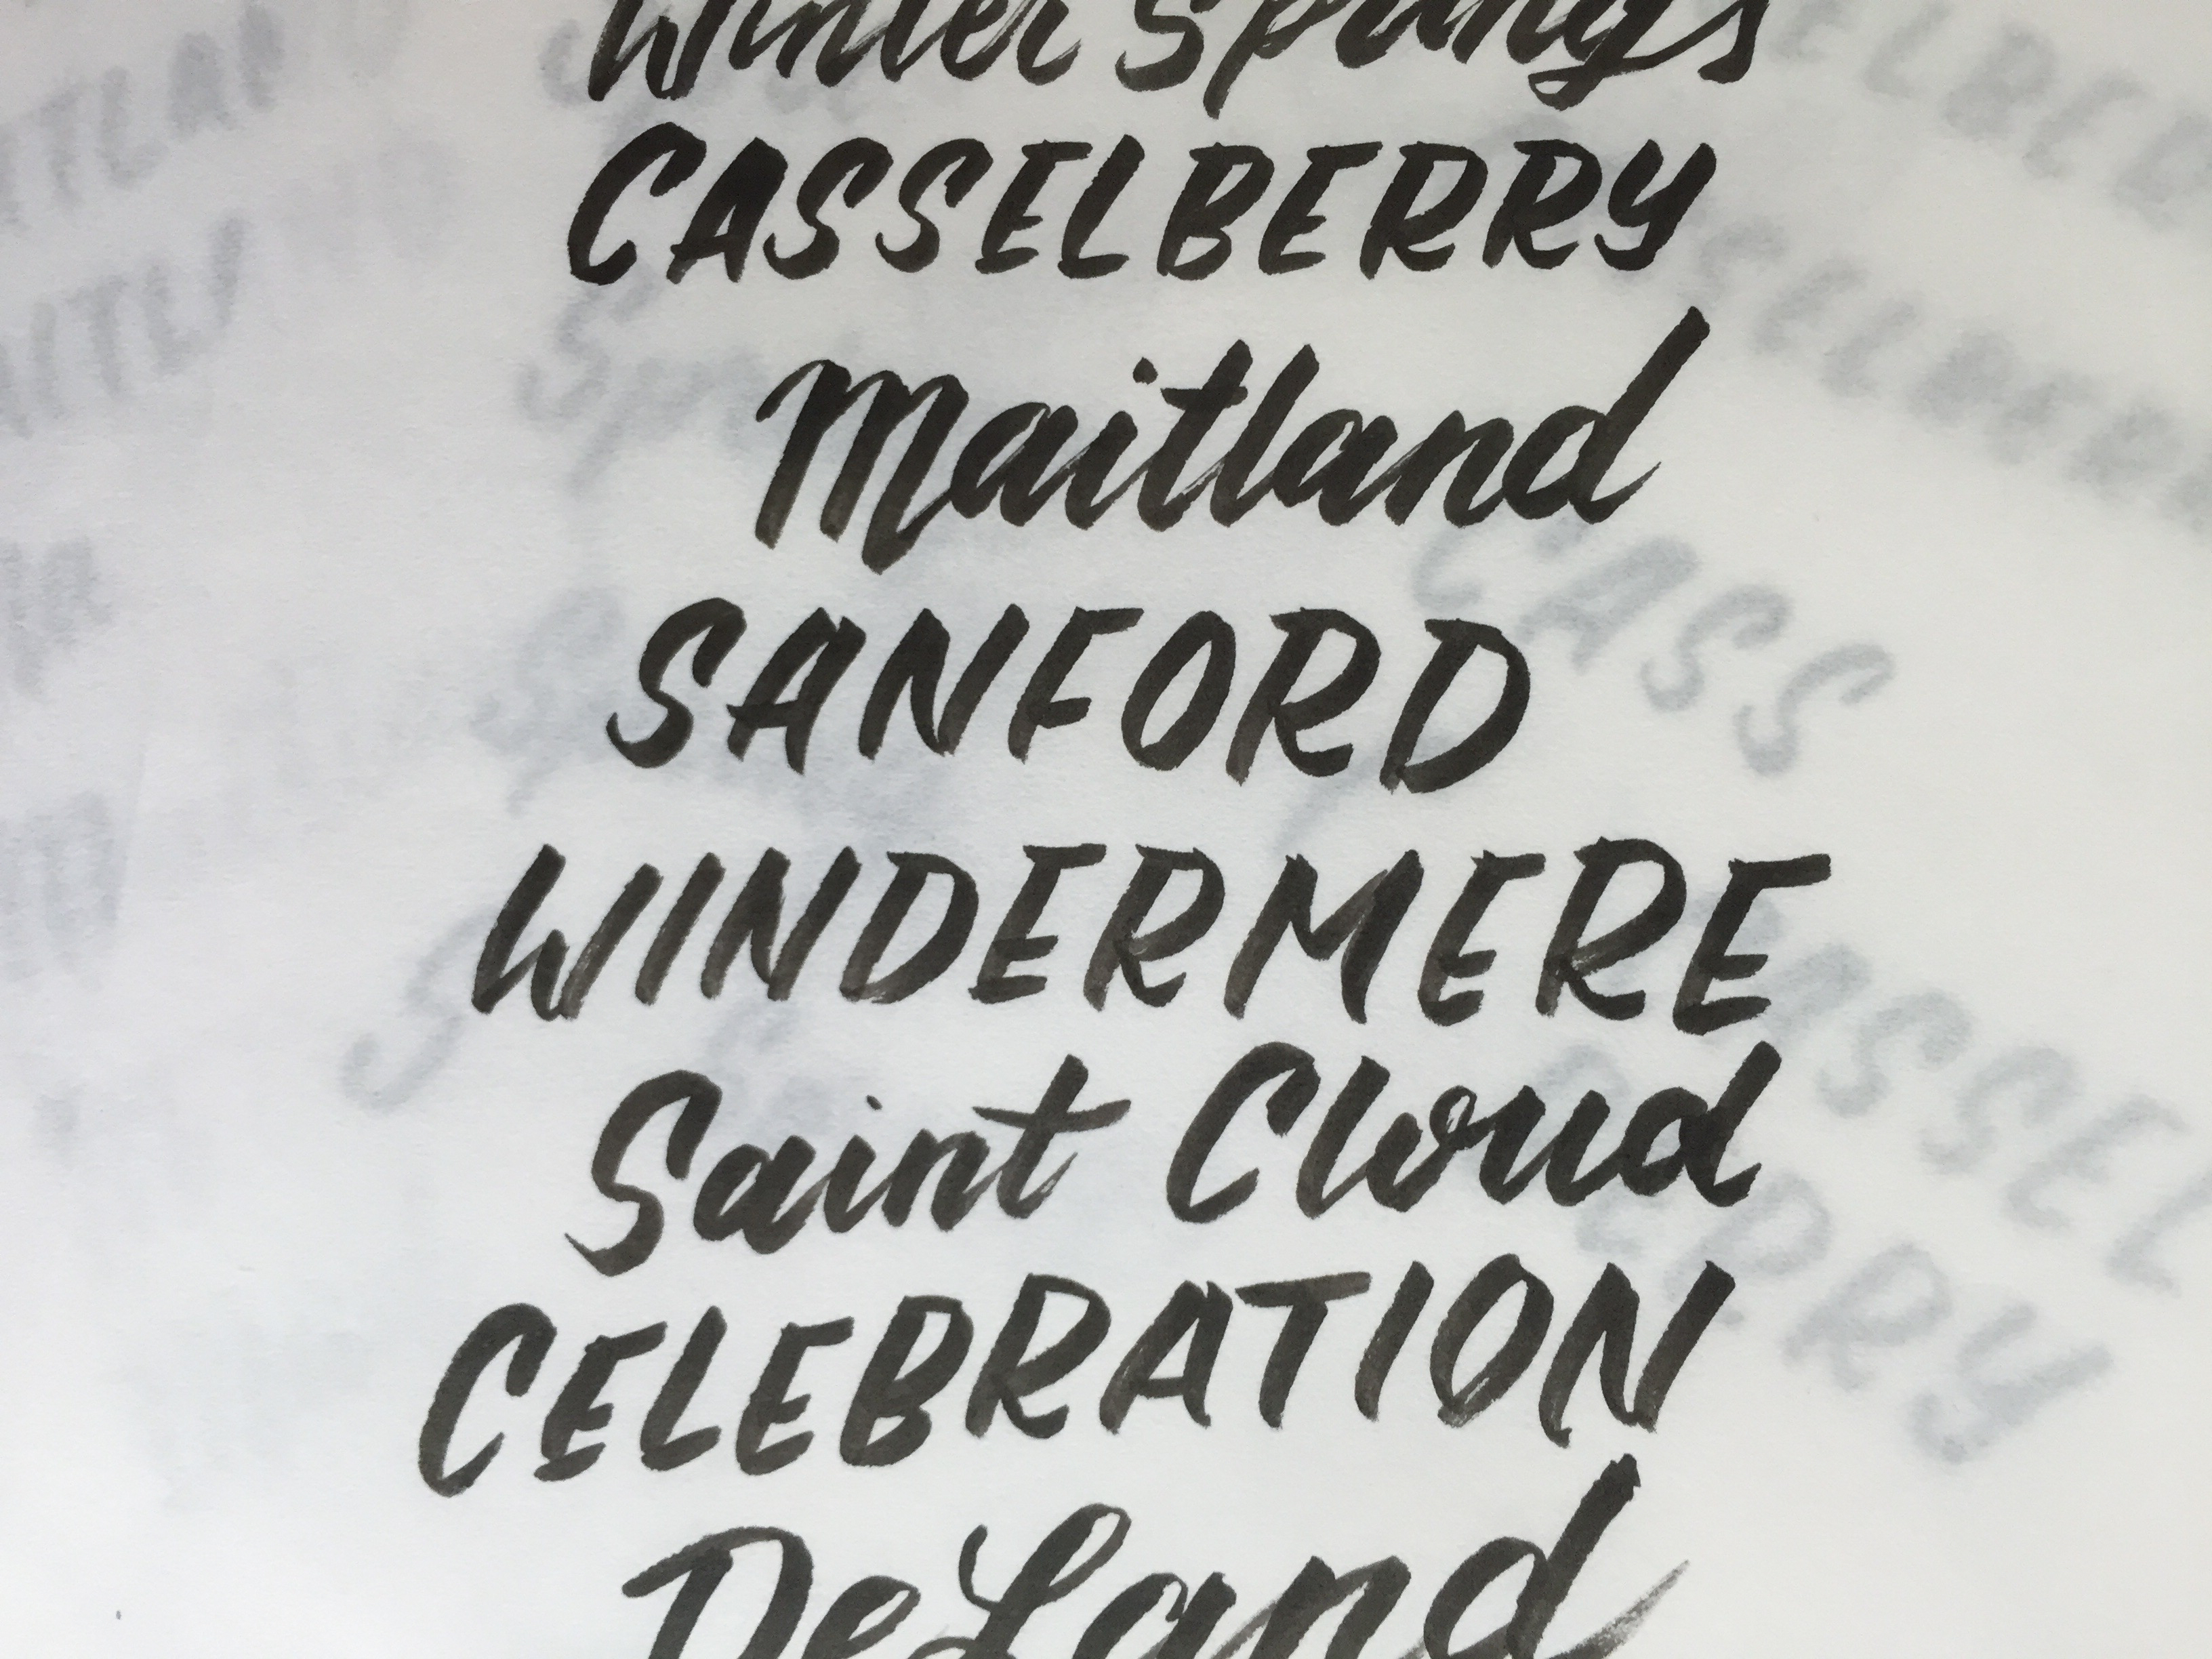 Winter Springs
CASSELBERRY
Maitland
SANFORD
WINDERMERE
Saint Cloud
CELEBRATION
DeLand